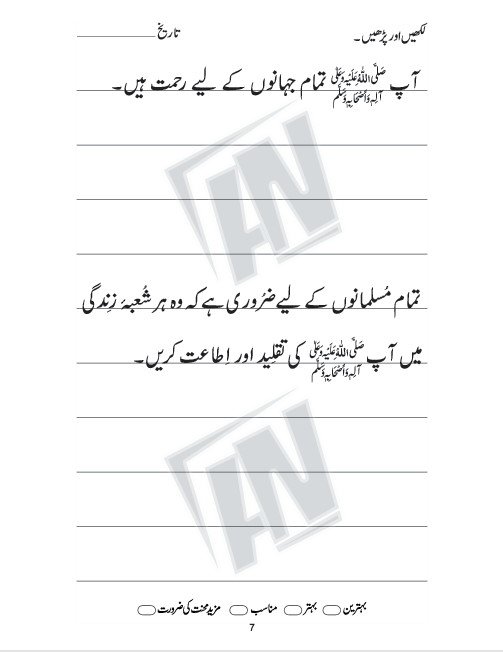 لکھیں اور پڑھیں۔ تاریخ
آپ صَلَّی اللہُ عَلَیْہِ وَعَلٰی آلِہٖ وَاَصْحَابِہٖ وَسَلَّم تمام جہانوں کے لیے رحمت ہیں۔
تمام مُسلمانوں کے لیے ضرُوری ہے کہ وہ ہر شُعبۂ زِندگی
میں آپ صَلَّی اللہُ عَلَیْہِ وَعَلٰی آلِہٖ وَاَصْحَابِہٖ وَسَلَّم کی تقلِید اور اِطاعت کریں۔
بہترین بہتر مناسب مزید محنت کی ضرورت
7